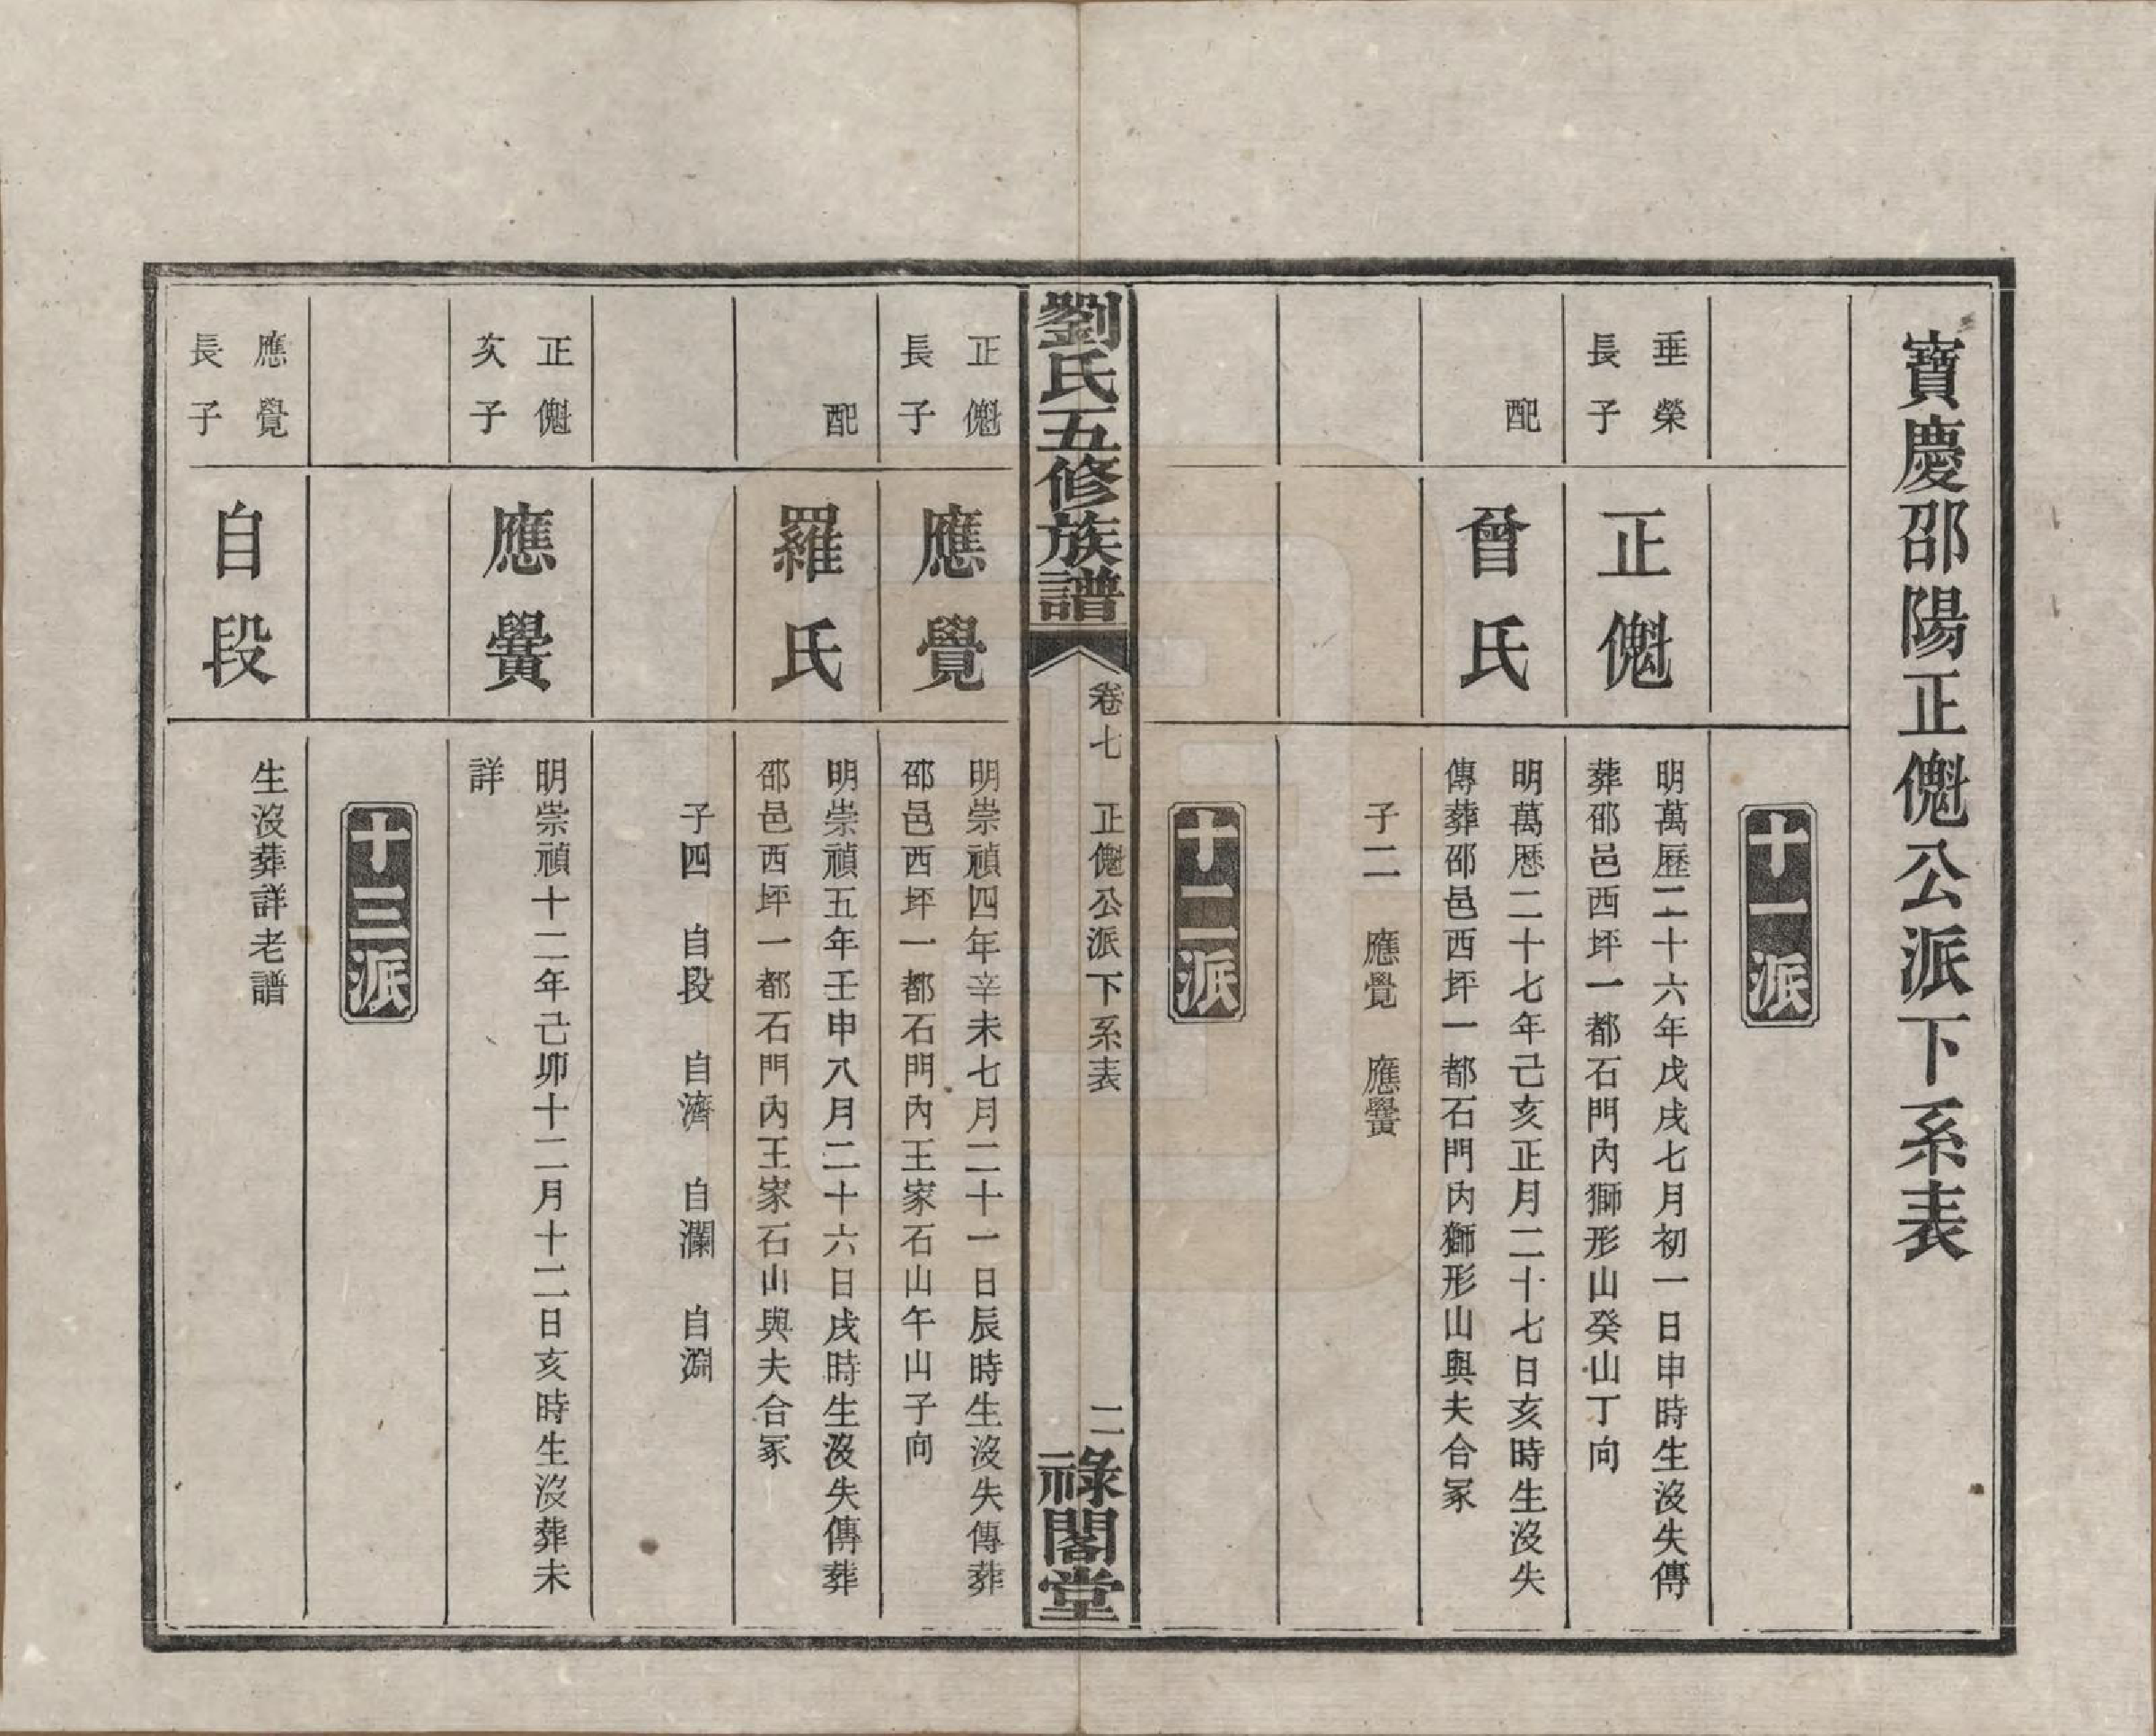 寶慶邵陽正傀公派下系表
十一派
垂榮
長子
正傀
明萬歷二十六年戊戌七月初一日申時生沒失傳
葬邵邑西坪一都石門內獅形山癸山丁向
配
曾氏
明萬歷二十七年己亥正月二十七日亥時生沒失
傳葬邵邑西坪一都石門內獅形山與夫合冢
子二　應覺　應黌
十二派
劉氏五修族譜
卷七　正傀公派下系表
二
祿閣堂
正傀
長子
應覺
明崇禎四年辛未七月二十一日辰時生沒失傳葬
邵邑西坪一都石門內王家石山午山子向
配
羅氏
明崇禎五年壬申八月二十六日戌時生沒失傳葬
邵邑西坪一都石門內王家石山與夫合冢
子四　自段　自濟　自瀾　自淵
正傀
次子
應黌
明崇禎十二年己卯十二月十二日亥時生沒葬未
詳
十三派
應覺
長子
自段
生沒葬詳老譜